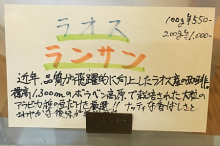 ラオス
100g ¥550-
200g ¥1,000-
ランサン
近年、品質が飛躍的に向上したラオス産の珈琲
標高1,300mのボラベン高原で栽培された大粒の
アラビカ種の豆だけを厳選!! ナッティな香ばしさと